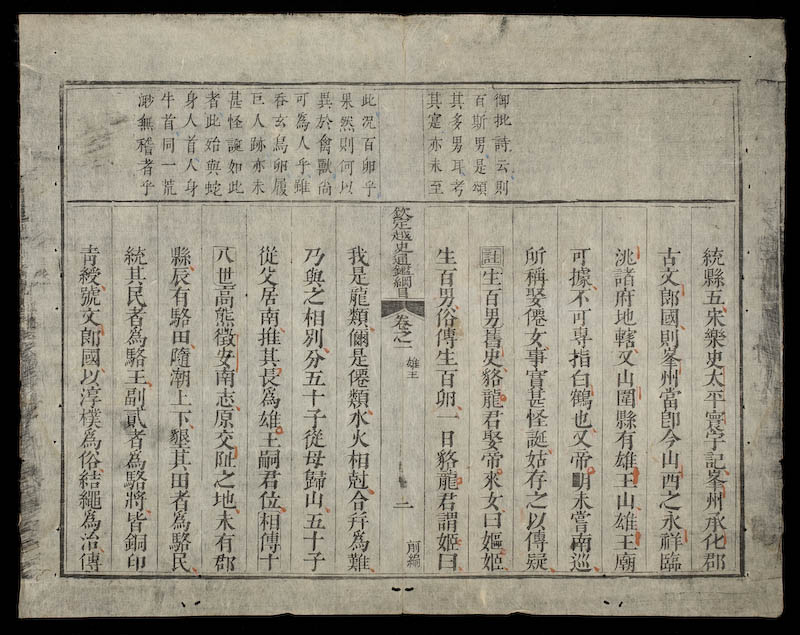 御批詩云則
百斯男是頌
其多男耳考
其寔亦未至
此況百卵乎
果然則何以
異於禽獸尚
可為人乎雖
吞玄鳥卵履
巨人跡亦未
甚怪誕如此
者此始與蛇
身人首人身
牛首同一荒
渺無稽者乎
統縣五宋樂史太平寰宇記峯州承化郡
古文郎國則峯州當卽今山西之永祥臨
洮諸府地轄又山圍縣有雄王山雄王廟
可據不可專指白鶴也又帝明未嘗南巡
所稱娶僊女事實甚怪誕姑存之以傳疑
註生百男舊史貉龍君娶帝來女曰嫗姬
生百男俗傳生百卵一日貉龍君謂姬曰
欽定越史通鑑綱目 卷之一 雄王 二 前編
我是龍類儞是僊類水火相尅合幷為難
乃與之相別分五十子從母歸山五十子
從父居南推其長為雄王嗣君位相傳十
八世高熊徵安南志原交趾之地未有郡
縣辰有駱田隨潮上下墾其田者為駱民
統其民者為駱王副貳者為駱將皆銅印
青綬號文郎國以淳樸為俗結繩為治傳